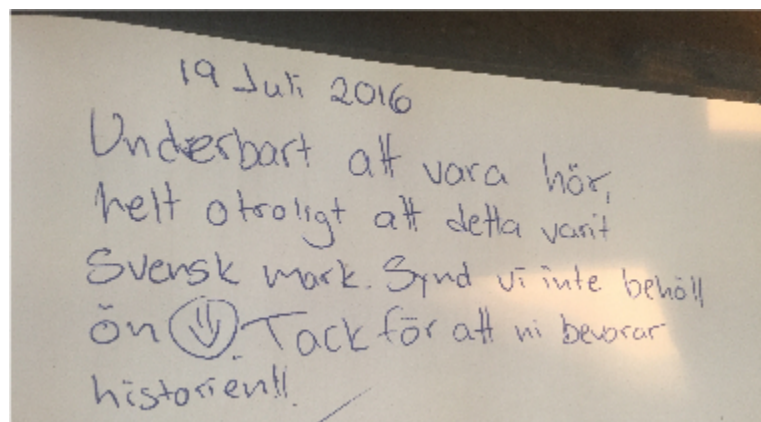 19 Juli 2016
Underbart att vara här,
helt otroligt att detta varit
Svensk mark. Synd vi inte behöll
ön. Tack för att ni bevarar
historien!!